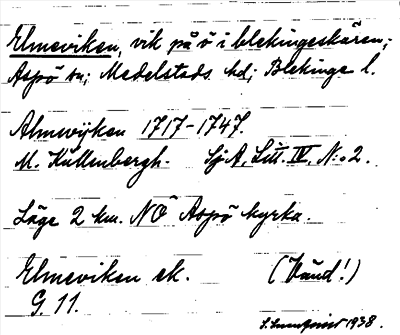 Elmeviken, vik på ö i blekingeskären;
Aspö sn; Medelstads hd; Blekinge l.
Almewijken 1717-1747.
M. Kullenbergh. SjA, Litt. IV, N:o 2.
Läge 2 km. NÖ Aspö kyrka.
Elmeviken ek. (Vänd!)
G. 11.
1938.